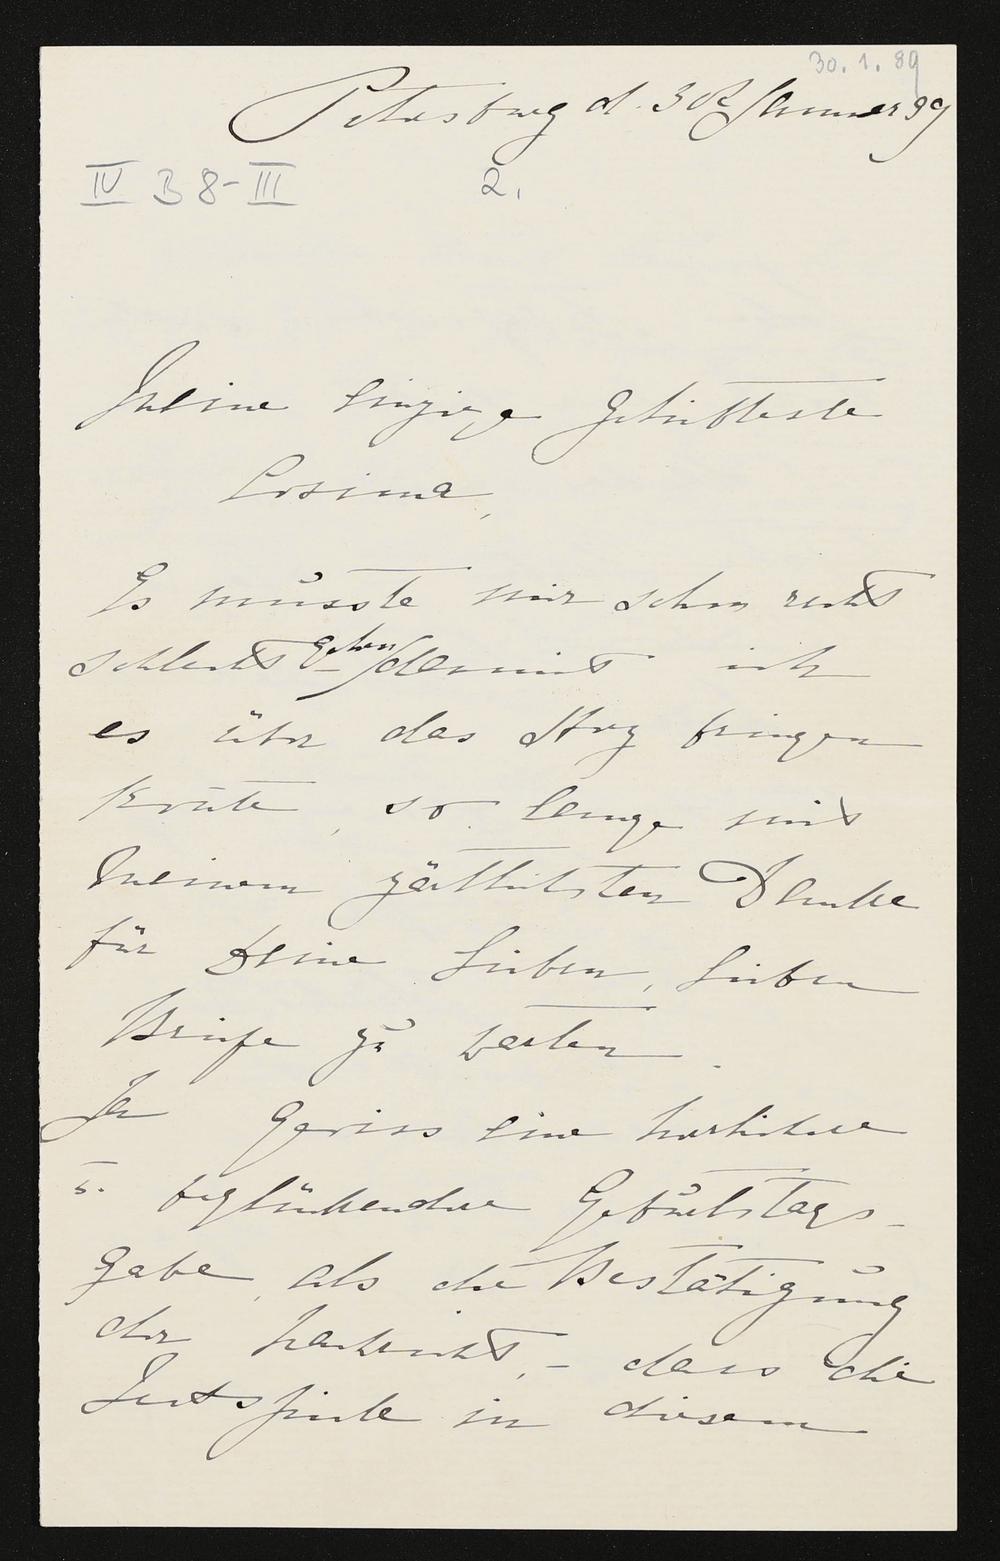 30. 1. 89
Petersburg d. 30t Januar 89
IV B 8-III 2.
Meine einzige Geliebteste
Cosima,
Es müsste mir schon recht
schlecht gehen damit ich
es über das Herz bringen
könte, so lange mit
meinem zärtlichsten Danke
für Deine lieben, lieben
Briefe zu warten.
Ja Gewiss eine herrlichere
u. beglückendere Geburtstags-
gabe, als die Bestätigung
der Nachricht, – dass die
Festspiele in diesem